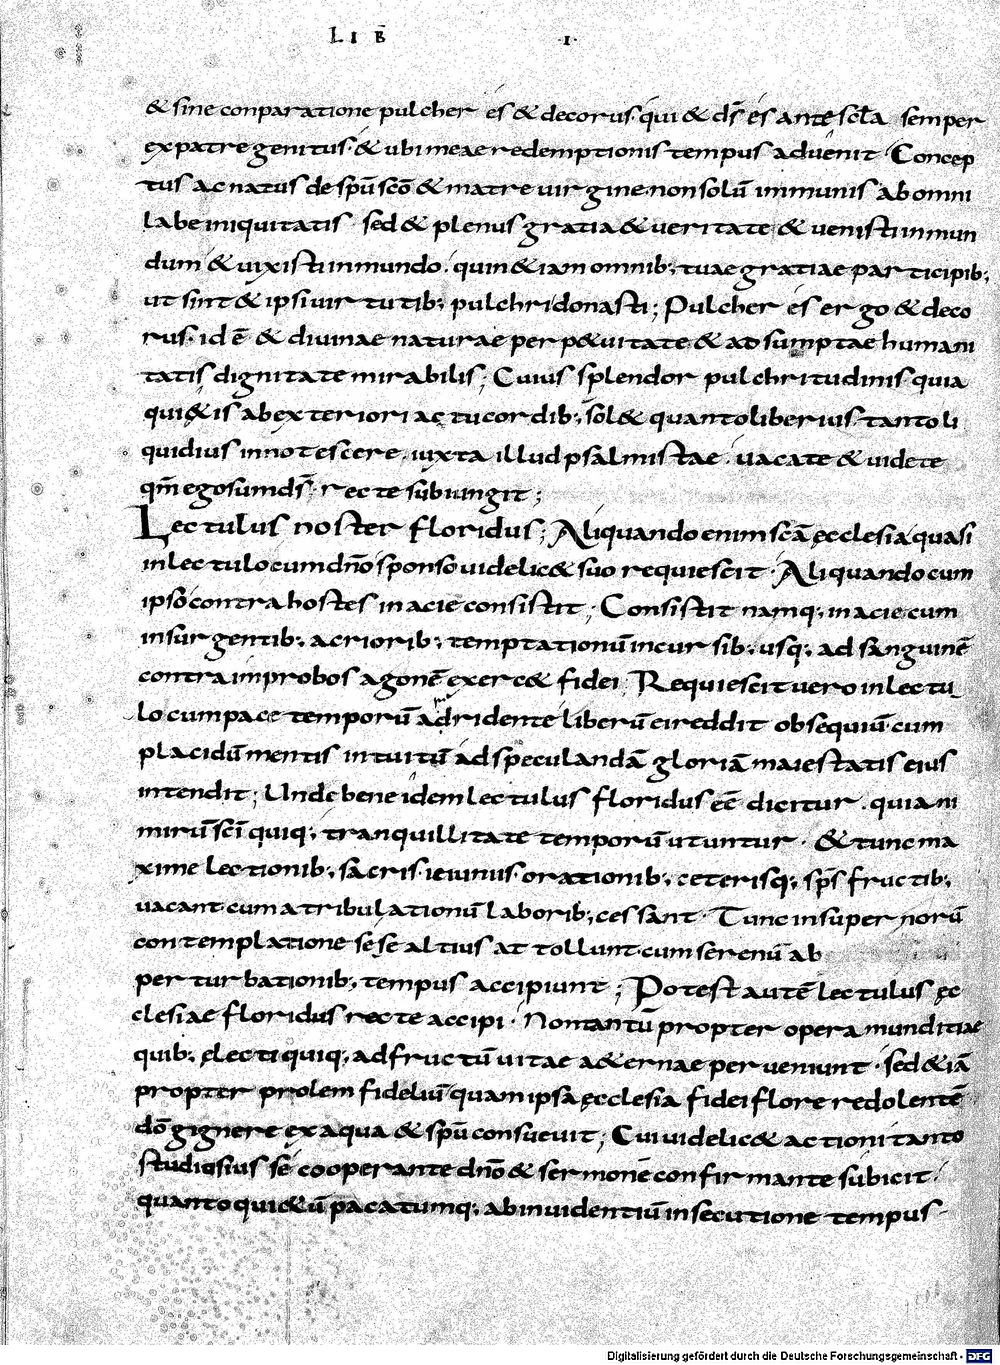 LIB̅ ·I·
& sine conparatione pulcher es & decorus· qui & d̅s es ante scl̅a semper
ex patre genitus· & ubi meae redemptionis tempus aduenit· Concep
tus ac natus de sp̅u sc̅o & matre uirgine non solu̅ inmunis ab omni
labe iniquitatis· sed & plenus gratia & ueritate & uenisti in mun
dum & uixisti in mundo· quin & iam omnib; tuae gratiae participib;
ut sint & ipsi uirtutib; pulchri donasti; Pulcher es ergo & deco
rus· id e̅ & diuinae naturae perp&uitate & adsumptae humani
tatis dignitate mirabilis; Cuius splendor pulchritudinis quia
qui&is ab exteriori actu cordib; sol& quanto liberius tanto li
quidius innotescere· iuxta illud psalmistae· uacate & uidete
qm̅ ego sum d̅s· recte subiungit;
Lectulus noster floridus; Aliquando enim sc̅a ęcclesia quasi
in lectulo cum dn̅o sponso uidelic& suo requiescit· Aliquando cum
ipso contra hostes in acie consistit; Consistit namq; in acie cum
insurgentib; acriorib; temptationu̅ incursib; usq; ad sanguine̅
contra improbos agone̅ exerc& fidei· Requiescit uero in lectu
lo cum pace temporu̅ adridente liberu̅ ei reddit obsequiu̅· cum
placidu̅ mentis intuitu̅ ad speculanda̅ gloria̅ maiestatis eius
intendit; Unde bene idem lectulus floridus ee̅ dicitur· quia ni
miru̅ sc̅i quiq; tranquillitate temporu̅ utuntur· & tunc ma
xime lectionib; sacris· ieiuniis· orationib; ceterisq; sp̅s fructib;
uacant· cum a tribulationu̅ laborib; cessant· Tunc in supernoru̅
contemplatione sese altius attollunt· cum serenu̅ ab
perturbationib; tempus accipiunt; Potest aute̅ lectulus ęc
clesiae floridus recte accipi· Non tantu̅ propter opera munditiae
quib; electi quiq; ad fructu̅ uitae a&ernae perueniunt· sed &ia̅
propter prolem fideliu̅ quam ipsa ęcclesia fidei flore redolente̅
do̅ gignere ex aqua & sp̅u consueuit; Cui uidelic& actioni tanto
studiosius se cooperante dn̅o & sermone̅ confirmante subicit·
quanto qui&u̅ pacatumq; ab inuidentiu̅ insecutione tempus
Digitalisierung gefördert durch die Deutsche Forschungsgemeinschaft - DFG